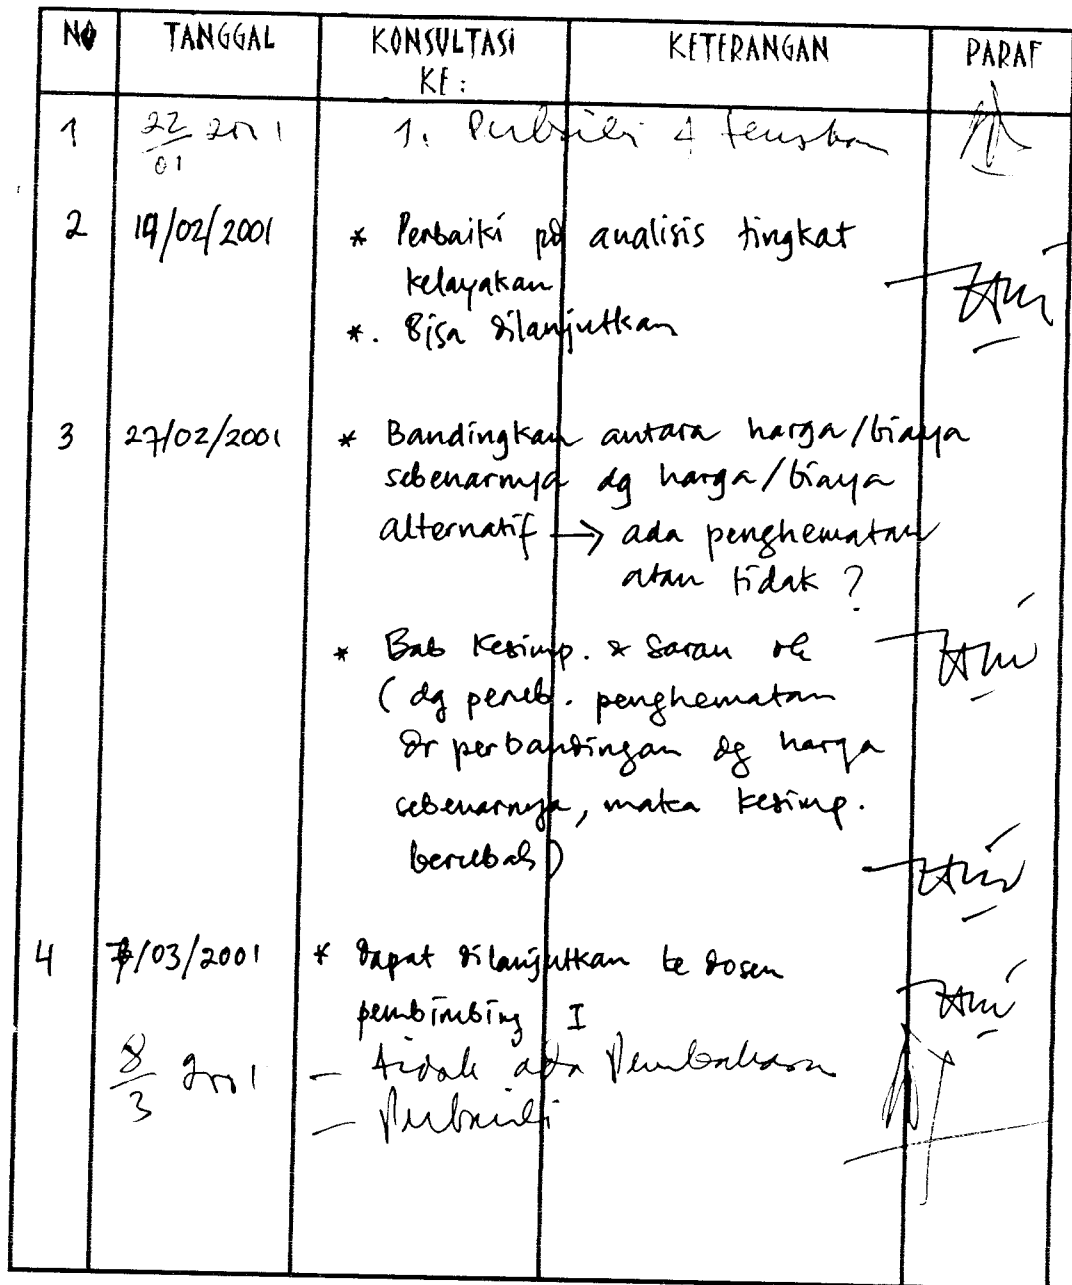 NO TANGGAL KONSULTASI KE : KETERANGAN PARAF
1 22/01 2001 1. Perbaiki & teruskan
2 19/02/2001 * Perbaiki pd analisis tingkat
kelayakan
*. Bisa dilanjutkan
3 27/02/2001 * Bandingkan antara harga/biaya
sebenarnya dg harga/biaya
alternatif → ada penghematan
atau tidak ?
* Bab Kesimp. & Saran ok
(dg peneb. penghematan
dr perbandingan dg harga
sebenarnya, maka kesimp.
berubah)
4 /03/2001 * dapat dilanjutkan ke dosen
pembimbing I
8/3 2001 – tidak ada Pembahasan
– Perbaiki